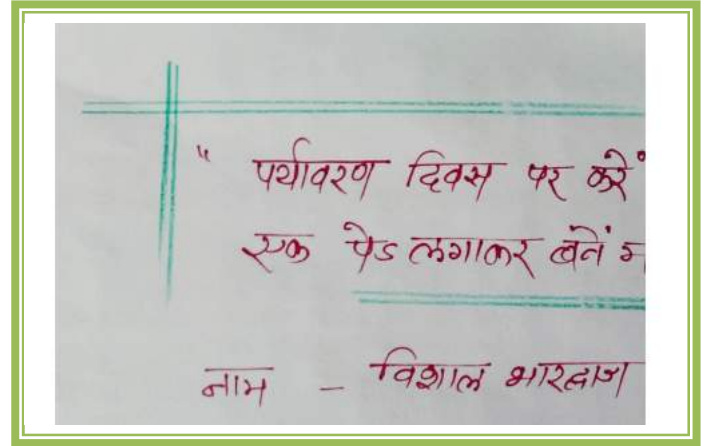 " पर्यावरण दिवस पर करें
एक पेड लगाकर बनें
नाम – विशाल भारद्वाज